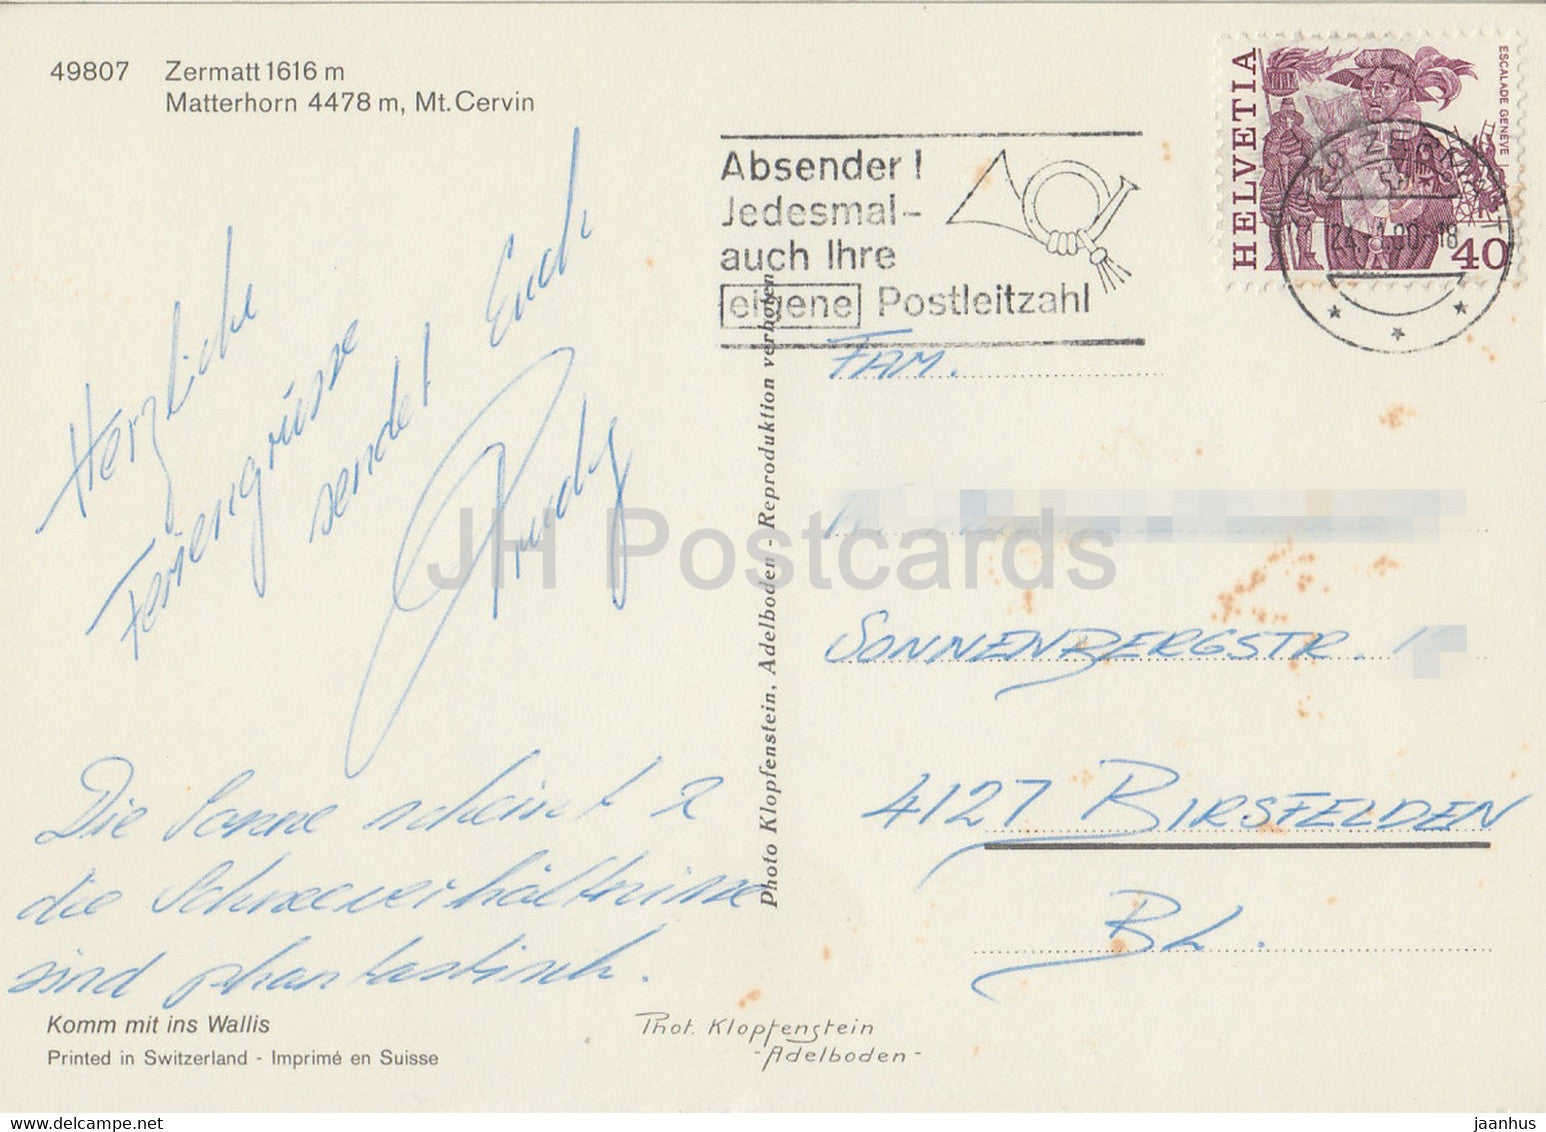 49807 Zermatt 1616 m
Matterhorn 4478 m, Mt. Cervin
Herzliche
Feriengrüsse
sendet Euch
Trudy
Die Sonne scheint &
die Schneeverhältnisse
sind phantastisch.
Komm mit ins Wallis
Printed in Switzerland - Imprimé en Suisse
Photo Klopfenstein, Adelboden - Reproduktion verboten
Phot. Klopfenstein
- Adelboden -
Absender!
Jedesmal-
auch Ihre
eigene Postleitzahl
HELVETIA
ESCALADE GENÈVE
40
ZERMATT
FAM.
SONNENBERGSTR.
4127 BIRSFELDEN
BL.
JH Postcards
jaanhus